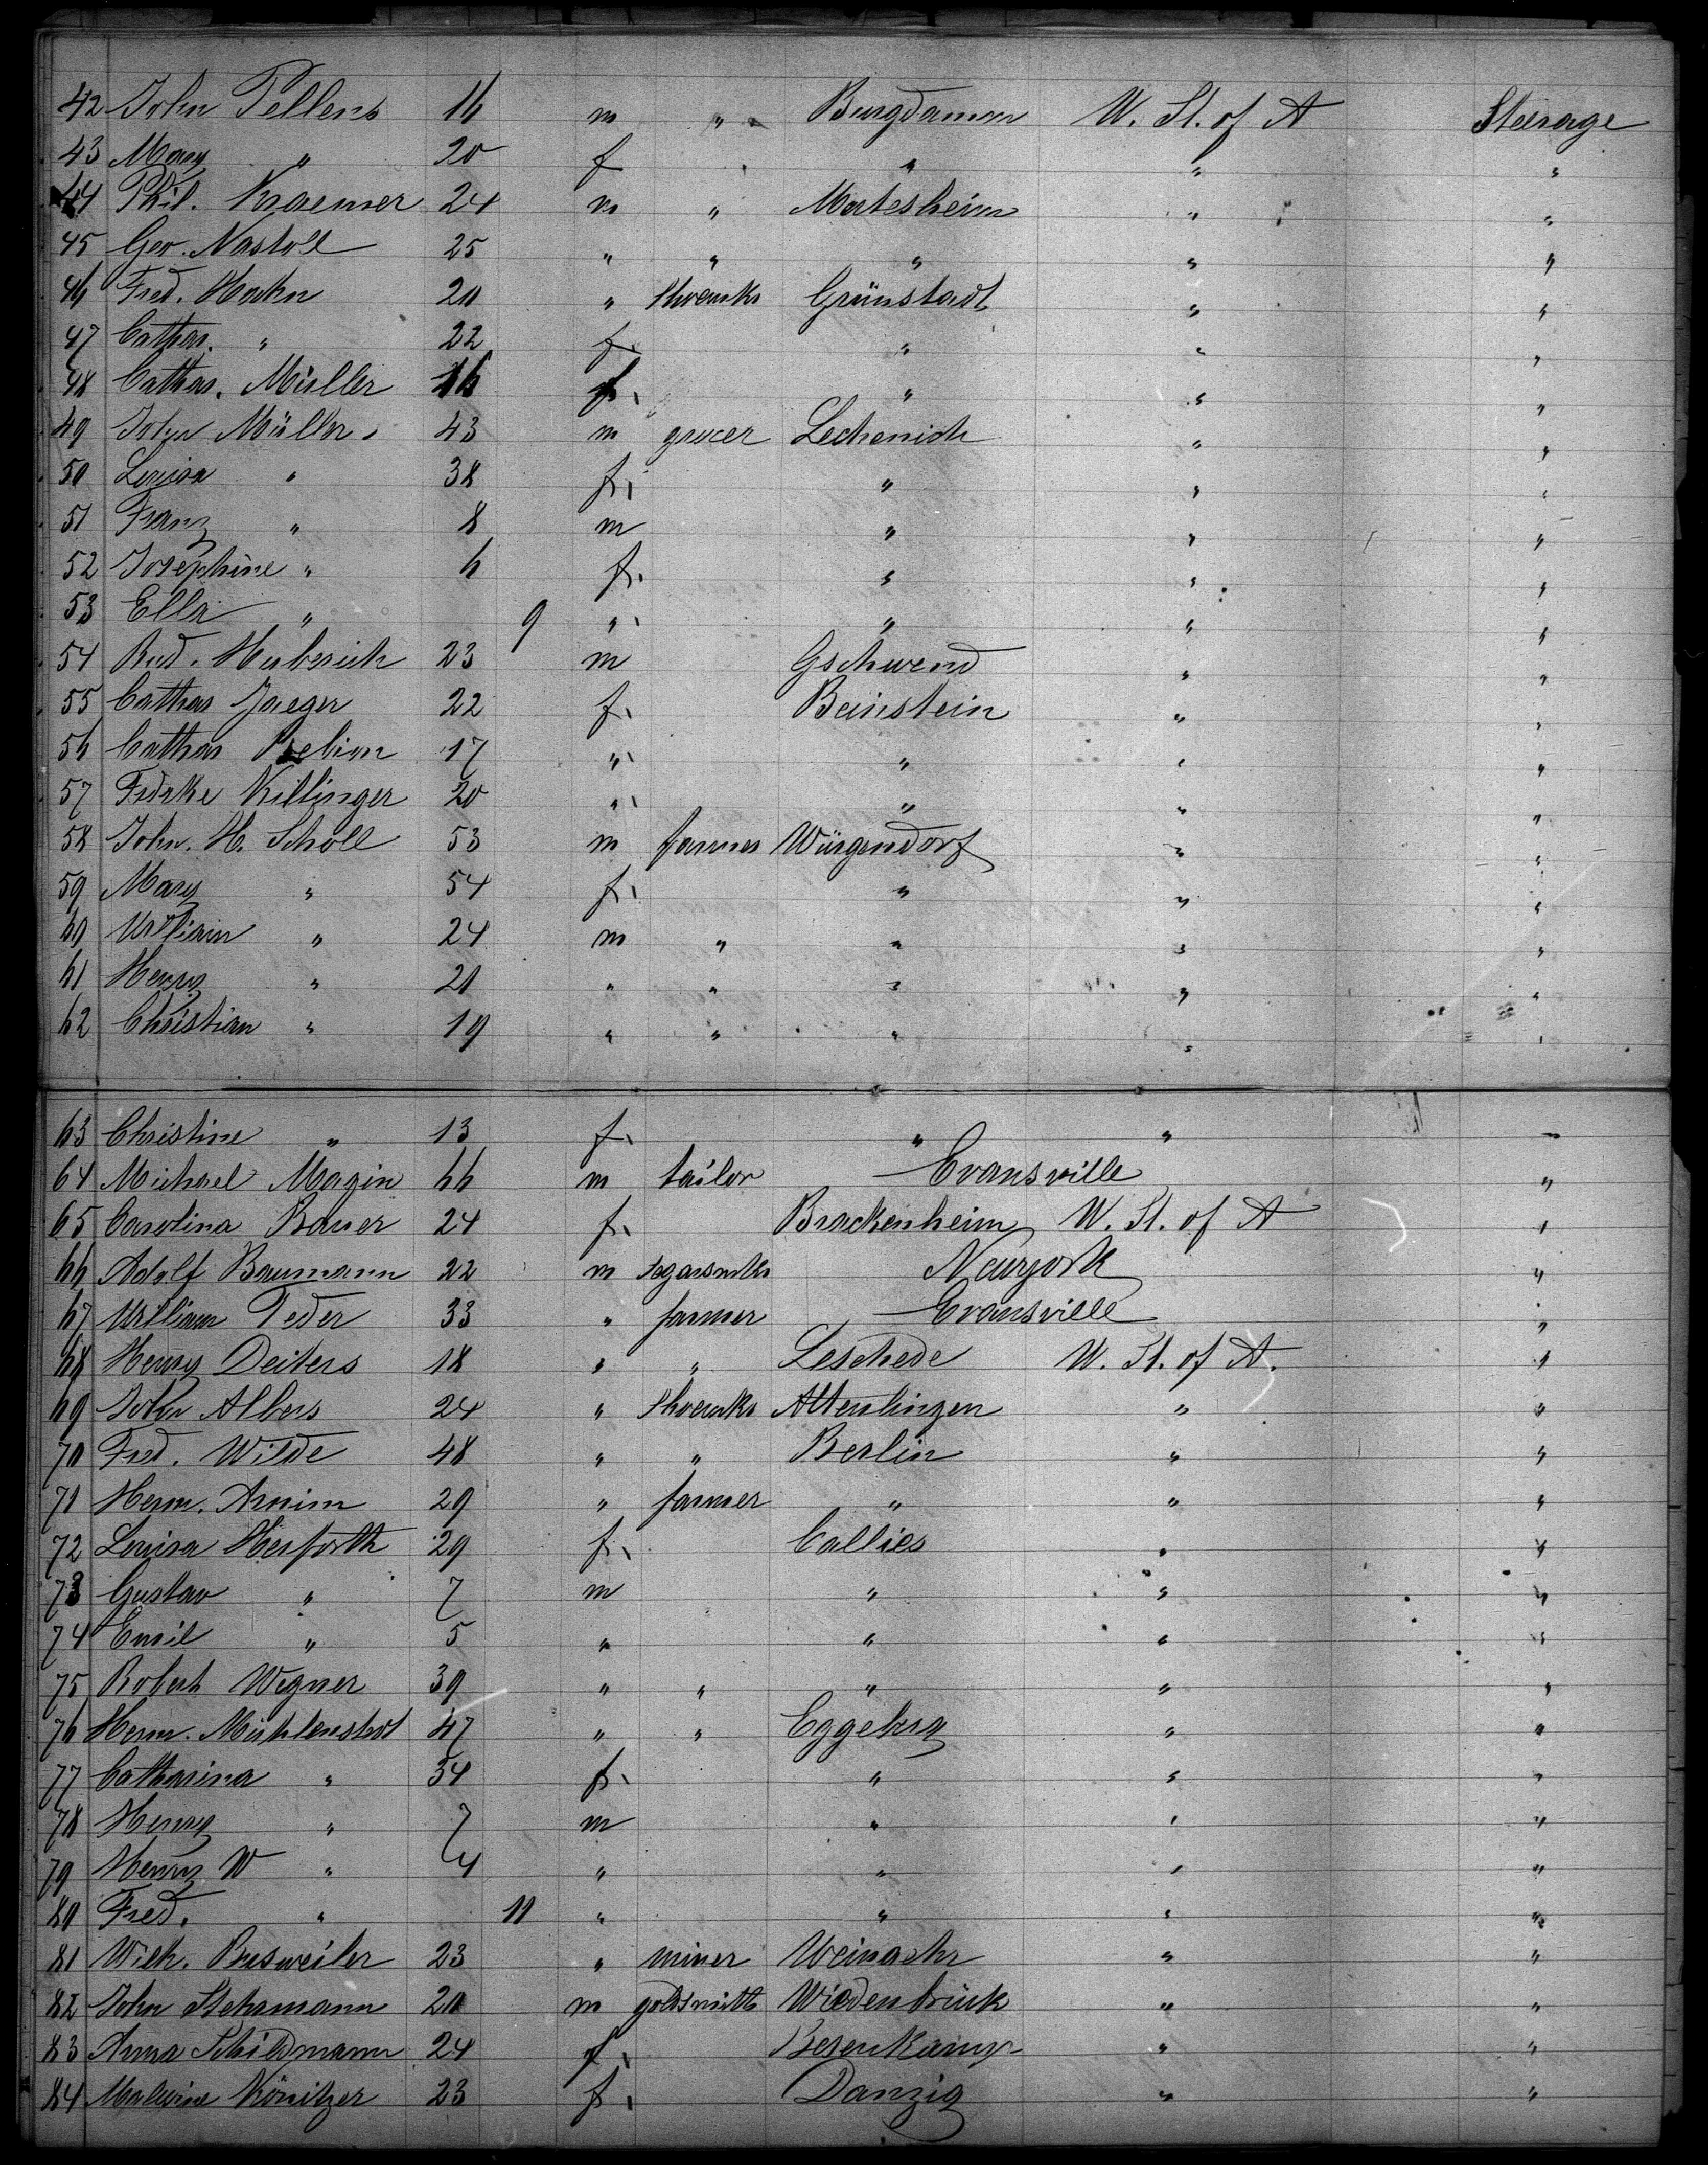 42 John Tellens 16 m " Burgdamm U. St. of A Steerage
43 Mary " 20 f " " "
44 Phil. Kraemer 24 m " Mertesheim " "
45 Geo. Nastoll 25 " " " " "
46 Fred. Hahn 20 " Shoemkr Grünstadt " "
47 Cathar. " 22 f. " " "
48 Cathar. Müller 16 f. " " "
49 John Müller 43 m grocer Lechenich " "
50 Louisa " 38 f. " " "
51 Franz " 8 m " " "
52 Josephine " 6 f. " " "
53 Ella " 9 " " " "
54 Rud. Huberich 23 m Gschwend " "
55 Cathar Jaeger 22 f. Beinstein " "
56 Cathar 17 " " " "
57 Fedrke Killinger 20 " " " "
58 John. H. Scholl 53 m farmer Würgendorf " "
59 Mary " 54 f. " " "
60 William " 24 m " " " "
61 Henry " 21 " " " " "
62 Christian " 19 " " " " "
63 Christine " 13 f. " " "
64 Michael Magin 66 m tailor Evansville "
65 Carolina Bauer 24 f. Brackenheim U. St. of A "
66 Adolf Baumann 22 m Newyork "
67 William Feder 33 " farmer Evansville "
68 Henry Deiters 18 " " Leschede U. St. of A. "
69 John Albers 24 " Shoemkr Altenlingen " "
70 Fred. Wilde 48 " " Berlin " "
71 Herm. Arnim 29 " farmer " " "
72 Louisa Herforth 29 f. Callies " "
73 Gustav " 7 m " " "
74 Emil " 5 " " " "
75 Robert Wegner 39 " " " " "
76 Herm. Mühlenstedt 47 " " Eggeberg " "
77 Catharina " 34 f. " " "
78 Henry " 7 m " " "
79 Henry W " 4 " " " "
80 Fred. " 11 " " " "
81 Wilh. Busweiler 23 " miner Weinaehr " "
82 John Stehrmann 20 m goldsmith Wiedenbrück " "
83 Anna Schildmann 24 f. Besenkamp " "
84 Malwine Könitzer 23 f. Danzig " "